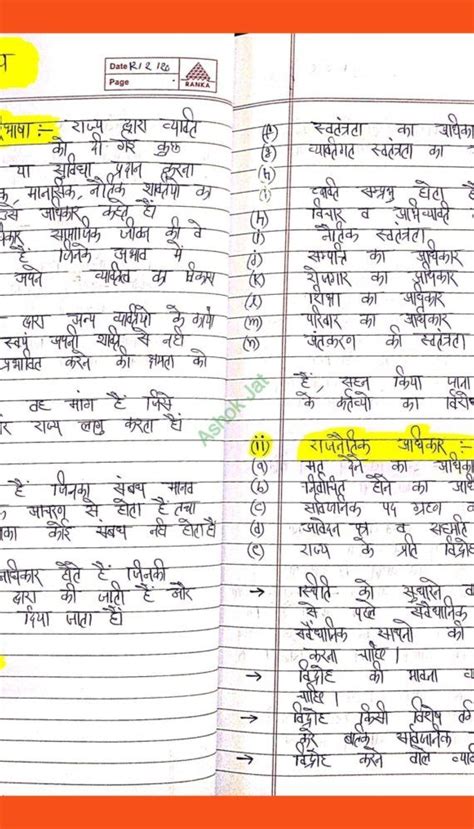 य
Date R1 2 120
Page
RANKA
भाषा :— राज्य द्वारा व्यक्ति
को दी गई कुछ
या सुविधा प्रदान करना
क, मानसिक, नैतिक शक्तियों का
उसे अधिकार कहते हैं।
कार सामाजिक जीवन की वे
हैं जिनके अभाव में
अपने व्यक्तित्व का विकास
द्वारा अन्य व्यक्तियों के
स्वयं अपनी शक्ति से नहीं
प्रभावित करने की क्षमता को
वह मांग है जिसे
और राज्य लागू करता है।
हैं जिनका संबंध मानव
आचरण से होता है तथा
का कोई संबंध नहीं होता है
अधिकार होते हैं जिनकी
द्वारा की जाती है और
दिया जाता है।
स्वतंत्रता का अधिकार
व्यक्तिगत स्वतंत्रता का
व्यक्ति सम्प्रभु होता है
विचार व अभिव्यक्ति
नैतिक स्वतंत्रता
सम्पत्ति का अधिकार
(k) रोजगार का अधिकार
(l) शिक्षा का अधिकार
(m) परिवार का अधिकार
(n) अंतकरण की स्वतंत्रता
है, सहन किया जाना
के कर्तव्यों का विरोध
Ashok Jat
(ii) राजनैतिक अधिकार :—
(a) मत देने का अधिकार
(b) निर्वाचित होने का
(c) सार्वजनिक पद ग्रहण
(d) आवेदन पत्र व सहमति
(e) राज्य के प्रति विद्रोह
→ स्थिति को सुधारने
से पहले संवैधानिक
संवैधानिक साधनों की
करना चाहिए।
→ विद्रोह की भावना
चाहिए।
→ विद्रोह किसी विशेष वर्ग
करे बल्कि सार्वजनिक
→ विद्रोह करने वाले